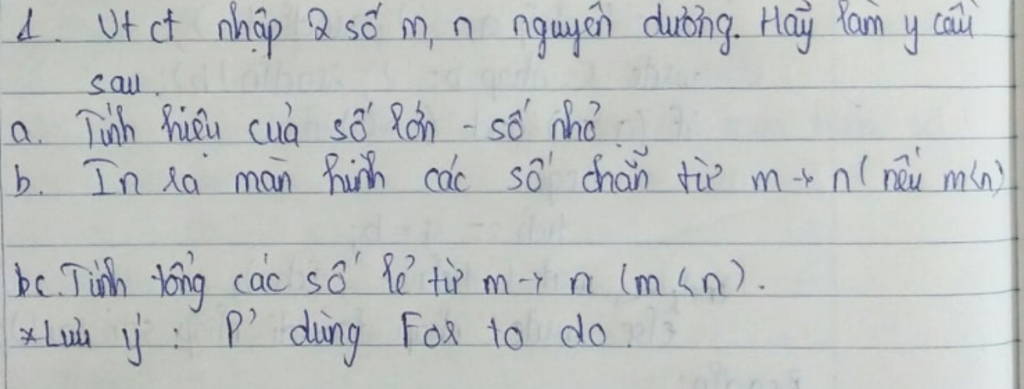 1. Vt ct nhập 2 số m, n nguyên dương. Hãy làm y cầu
sau.
a. Tính hiệu của số lớn - số nhỏ
b. In ra màn hình các số chẵn từ m → n (nếu m<n)
bc. Tính tổng các số lẻ từ m → n (m<n).
*Lưu ý: P' dùng For to do.